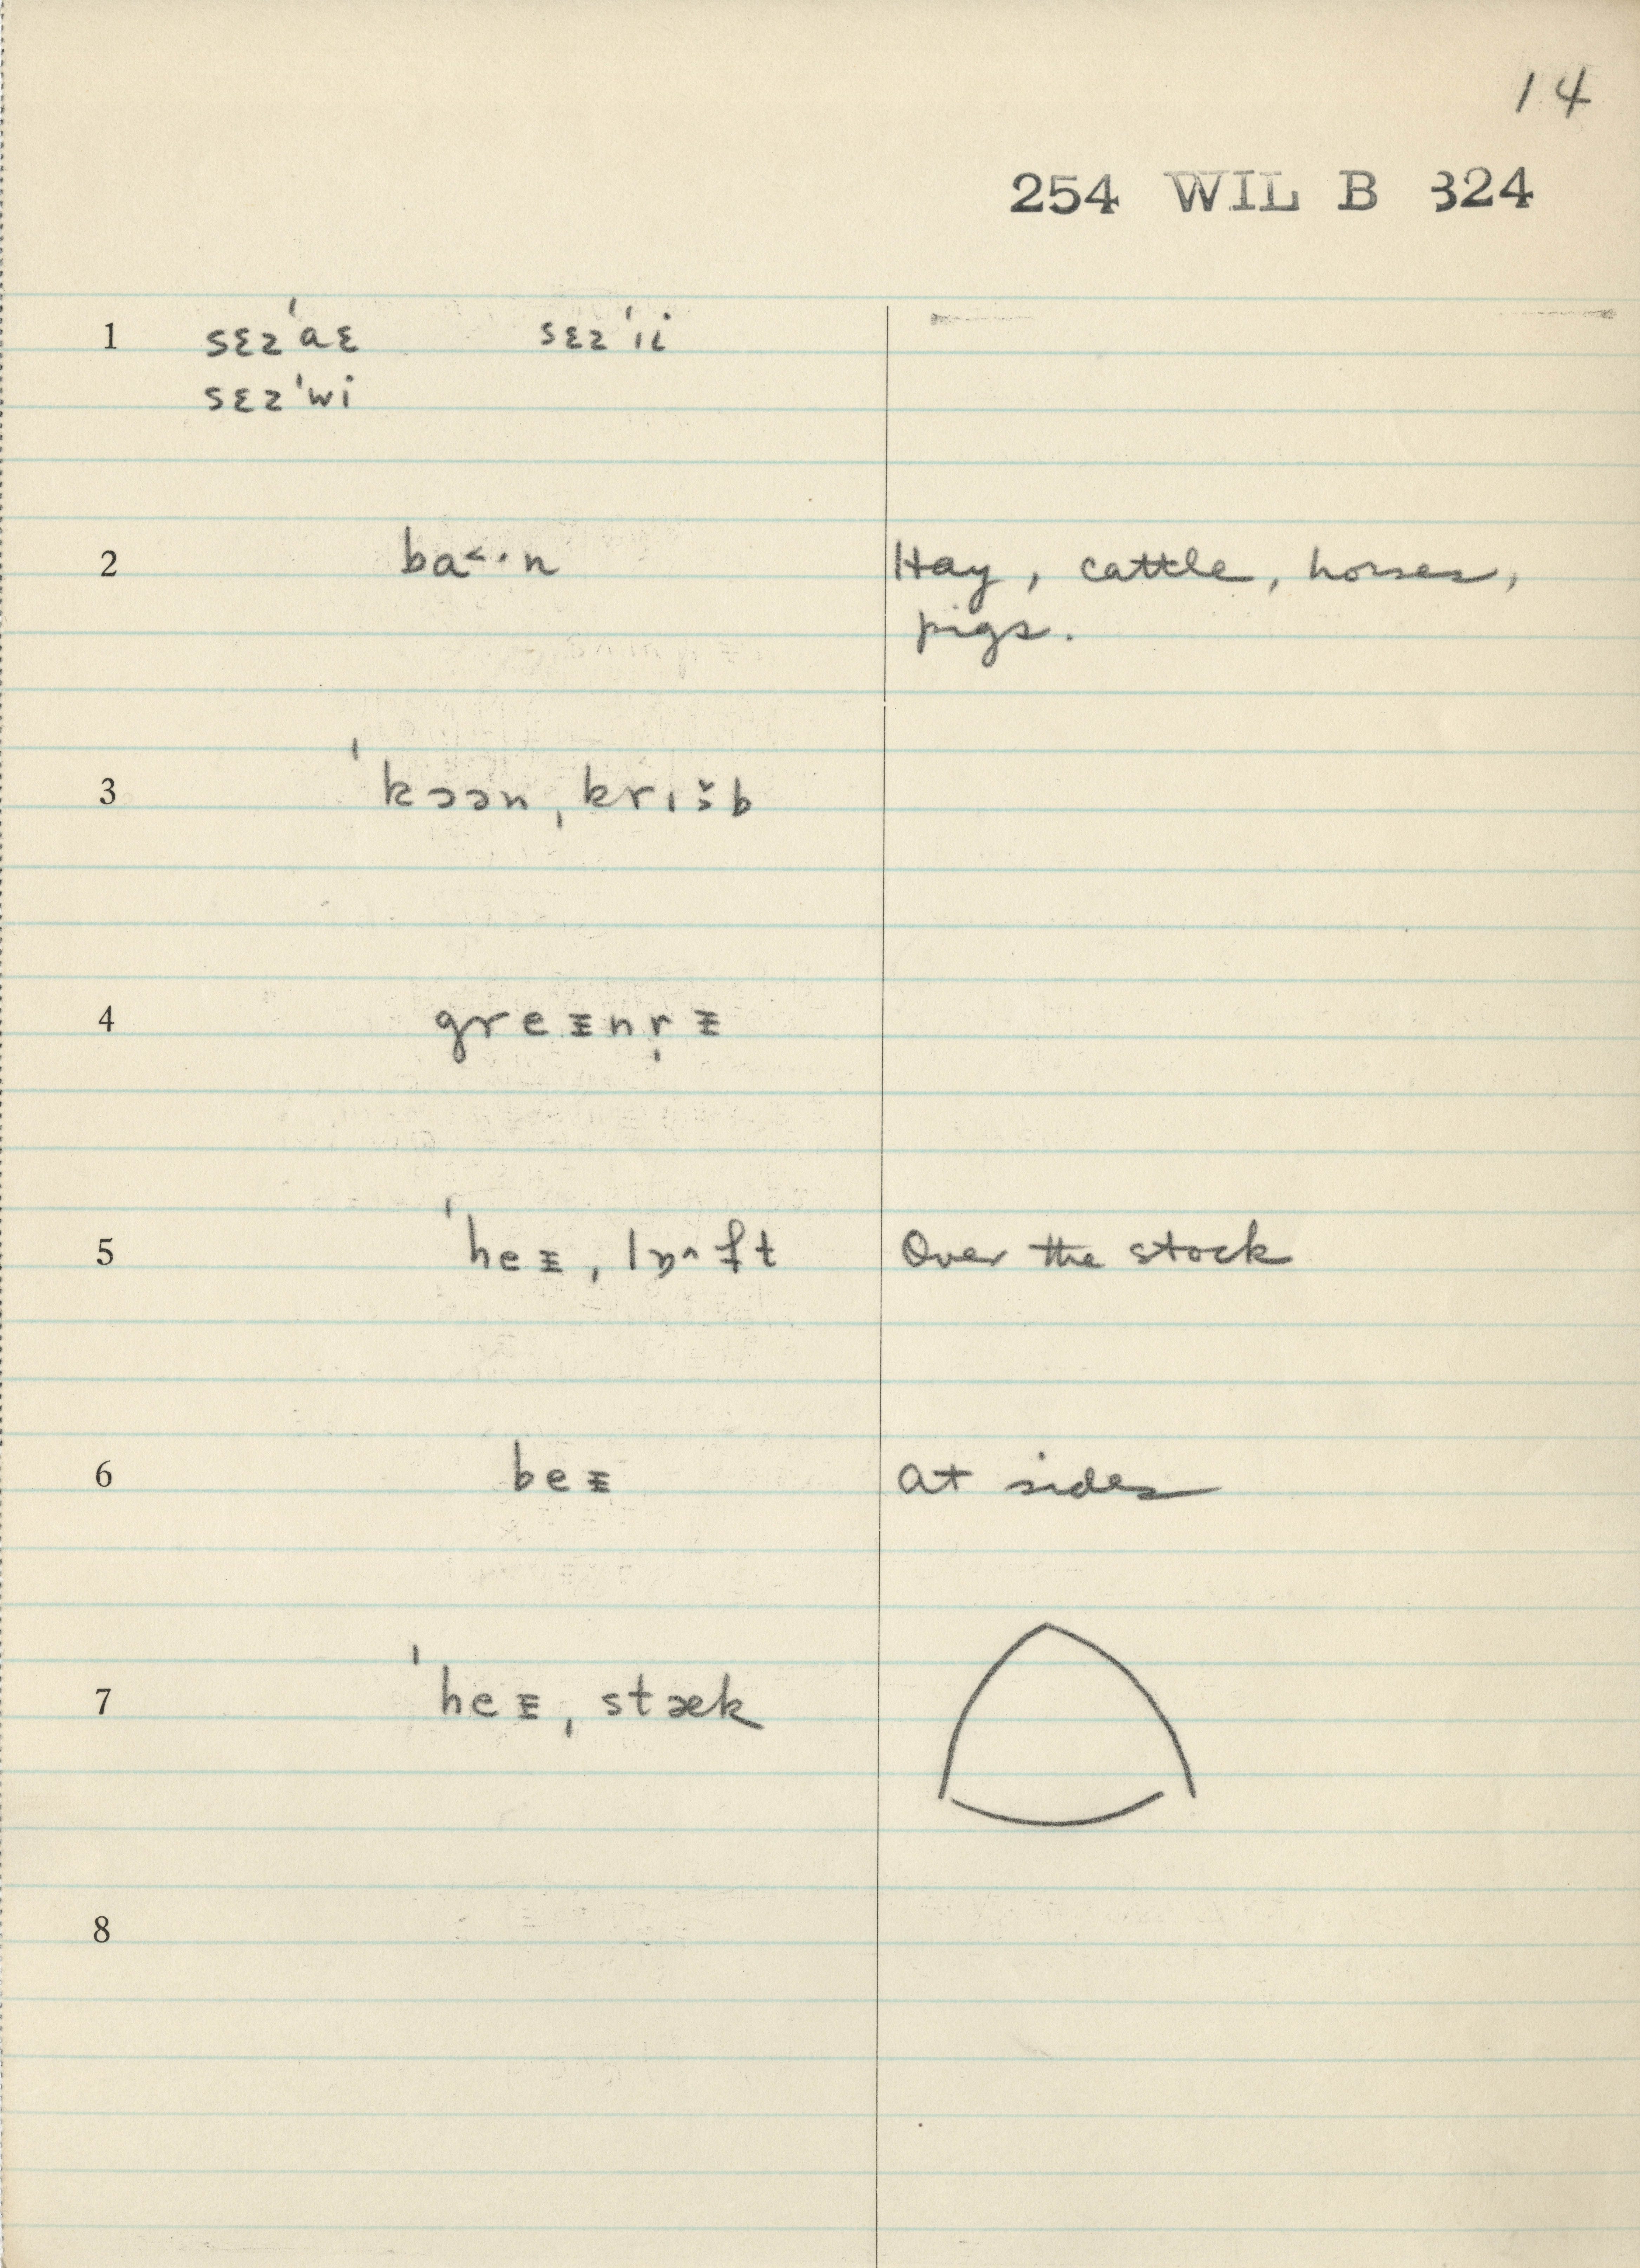 14
254 WIL B 324
1 sɛz'aɛ sɛz'ıi
sɛz'wi
2 ba˂·n Hay, cattle, horses,
pigs.
3 ˈkɔən ˌkrıš̬b
4 gre n r̩
5 ˈhe ˌlɒ˄ft Over the stock
6 be at sides
7 ˈhe ˌstæk
8